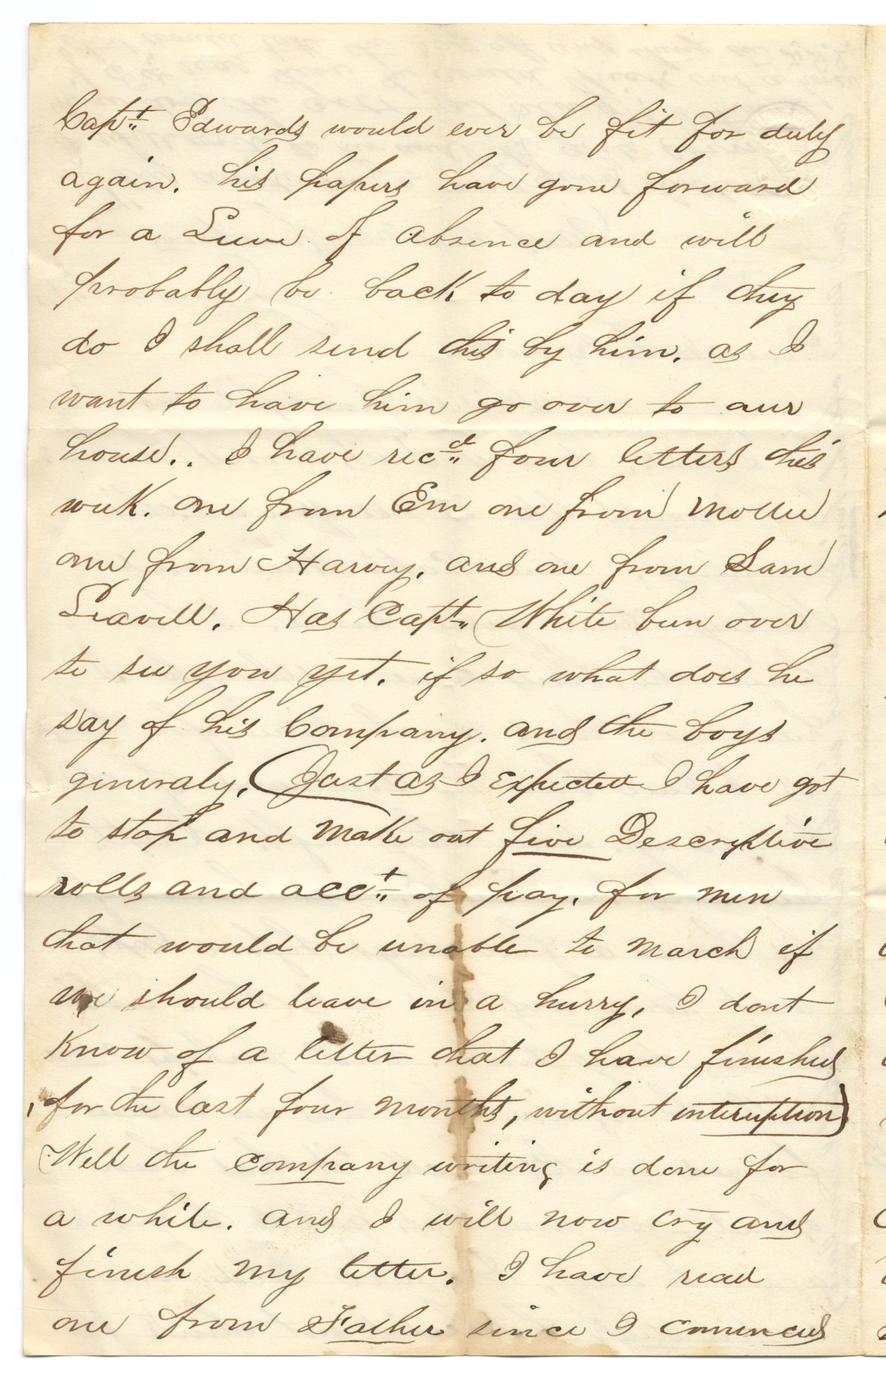 Capt. Edwards would ever be fit for duty
again. his papers have gone forward
for a Leave of absence and will
probably be back to day if they
do I shall send this by him. as I
want to have him go over to our
house.. I have recd four letters this
week. one from Em one from Mollie
one from Harvey. and one from Sam
Leavell. Has Capt. White been over
to see you yet. if so what does he
say of his Company. and the boys
generaly. (Just as I expected I have got
to stop and make out five Descriptive
rolls and acct. of pay. for men
that would be unable to march if
we should leave in a hurry, I dont
know of a letter that I have finished
for the last four months, without interuption)
Well the company writing is done for
a while. and I will now try and
finish my letter. I have read
one from Father since I comenced